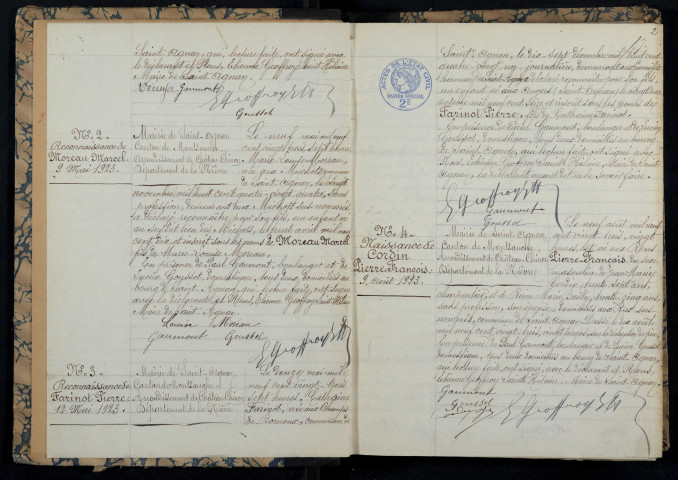 Saint Agnan, qui, lecture faite, ont signé avec
le déclarant et Nous, Etienne Geoffroy Saint Hilaire
Maire de Saint Agnan.
Gaumont
EGeoffroy St H
Goussot
N°. 2
Reconnaissance de
Moreau Marcel
9 Mai 1923.
Mairie de Saint-Agnan
Canton de Montsauche
Arrondissement de Château-Chinon
Département de la Nièvre
Le neuf mai mil neuf
cent vingt trois, sept heures
Marie Louise Moreau,
née aux Michots, commune
de Saint Agnan, le vingt
novembre mil huit cent quatre-vingt quatre, sans
profession, demeurant aux Michots sus nommés
a déclaré reconnaître pour son fils, un enfant né
au susdit lieu des Michots, le trente avril mil neuf
cent dix et inscrit sous les noms de Moreau Marcel
fils de Marie Louise Moreau.
En présence de Paul Gaumont, boulanger et de
Goussot, domestique, tous deux domiciliés au
bourg de Saint Agnan, qui, lecture faite, ont signé
avec la déclarante et Nous, Etienne Geoffroy Saint Hilaire
Maire de Saint Agnan.
Louise Moreau
Gaumont Goussot
EGeoffroy St H
N°. 3
Reconnaissance de
Farinot Pierre
12 Mai 1923.
Mairie de Saint-Agnan
Canton de Montsauche
Arrondissement de Château-Chinon
Département de la Nièvre
Le douze mai mil
neuf cent vingt trois
sept heures, Catherine
Farinot, née aux Champs
de Bornoux, commune de
2
Saint Agnan, le dix sept décembre mil huit cent
quatre-vingt un, journalière, demeurant
a déclaré reconnaître pour son fils,
un enfant né aux (Saint Agnan) le
mil neuf cent seize et inscrit sous les noms de
Farinot Pierre, de Catherine Farinot
En présence de Paul Gaumont, boulanger et
Goussot, domestique, tous deux domiciliés au bourg
de Saint Agnan, qui, lecture faite, ont signé avec
Nous, Etienne Geoffroy Saint Hilaire, Maire de Saint
Agnan, la déclarante ayant dit ne savoir faire.
ACTES DE L'ÉTAT CIVIL
PAPIER SPÉCIAL
2E
EGeoffroy St H
Gaumont
Goussot
N°. 4
Naissance de
Cordin
Pierre François
9. Août 1923.
Mairie de Saint Agnan
Canton de Montsauche
Arrondissement de Château-Chinon
Département de la Nièvre
Le neuf août mil neuf
cent vingt trois, vingt
heures, est né aux
Pierre François, du sexe
masculin, de Jean Marie
Cordin, trente sept ans,
charpentier, et de Reine Marie, trente cinq ans
sans profession, son épouse, domiciliés aux
nommés, commune de Saint Agnan. Dressé le dix août
mil neuf cent vingt trois, vingt heures, sur la déclaration du père
En présence de Paul Gaumont, boulanger et de Goussot
domestique, tous deux domiciliés au bourg de Saint Agnan,
qui, lecture faite, ont signé, avec le déclarant et Nous,
Etienne Geoffroy Saint Hilaire, Maire de Saint Agnan.
Gaumont
Goussot
EGeoffroy St H